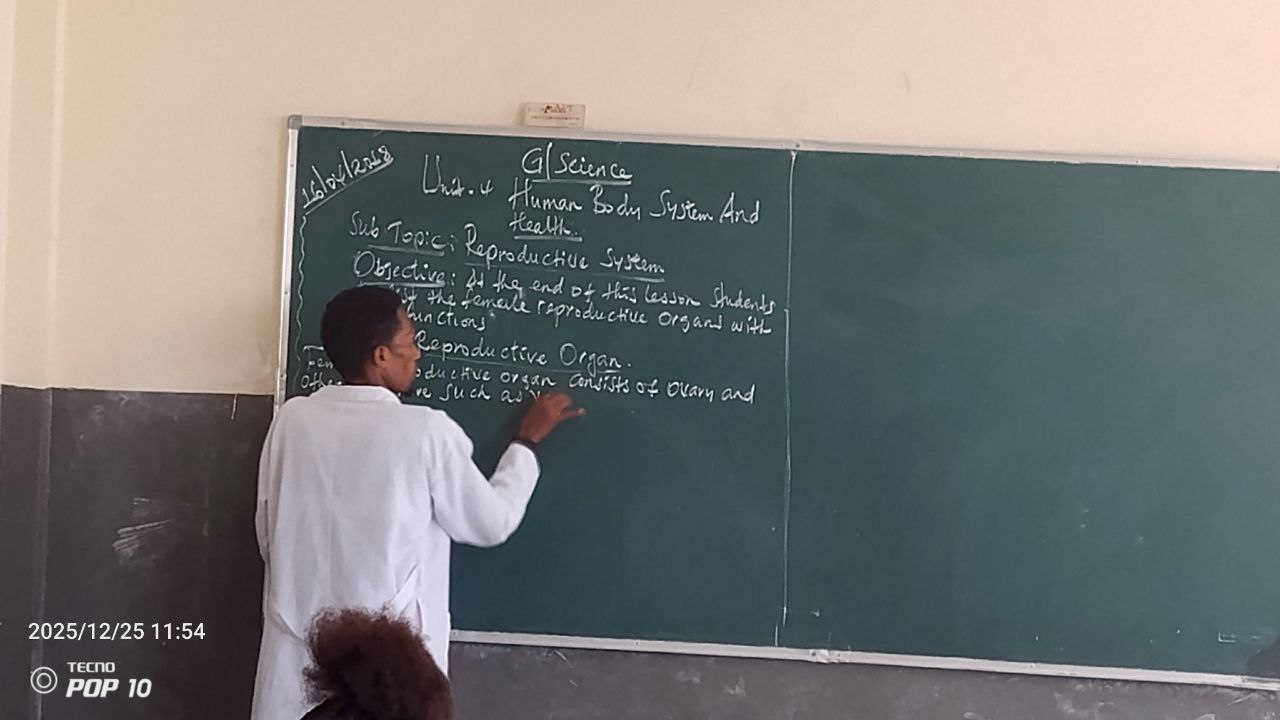 16/04/2018
G/Science
Unit. 4 Human Body System And
Health.
Sub Topic: Reproductive System
Objective: At the end of this lesson students
list the female reproductive organs with
functions
Reproductive Organ.
Fem oductive organ consists of ovary and
othe re such as
2025/12/25 11:54
TECNO
POP 10